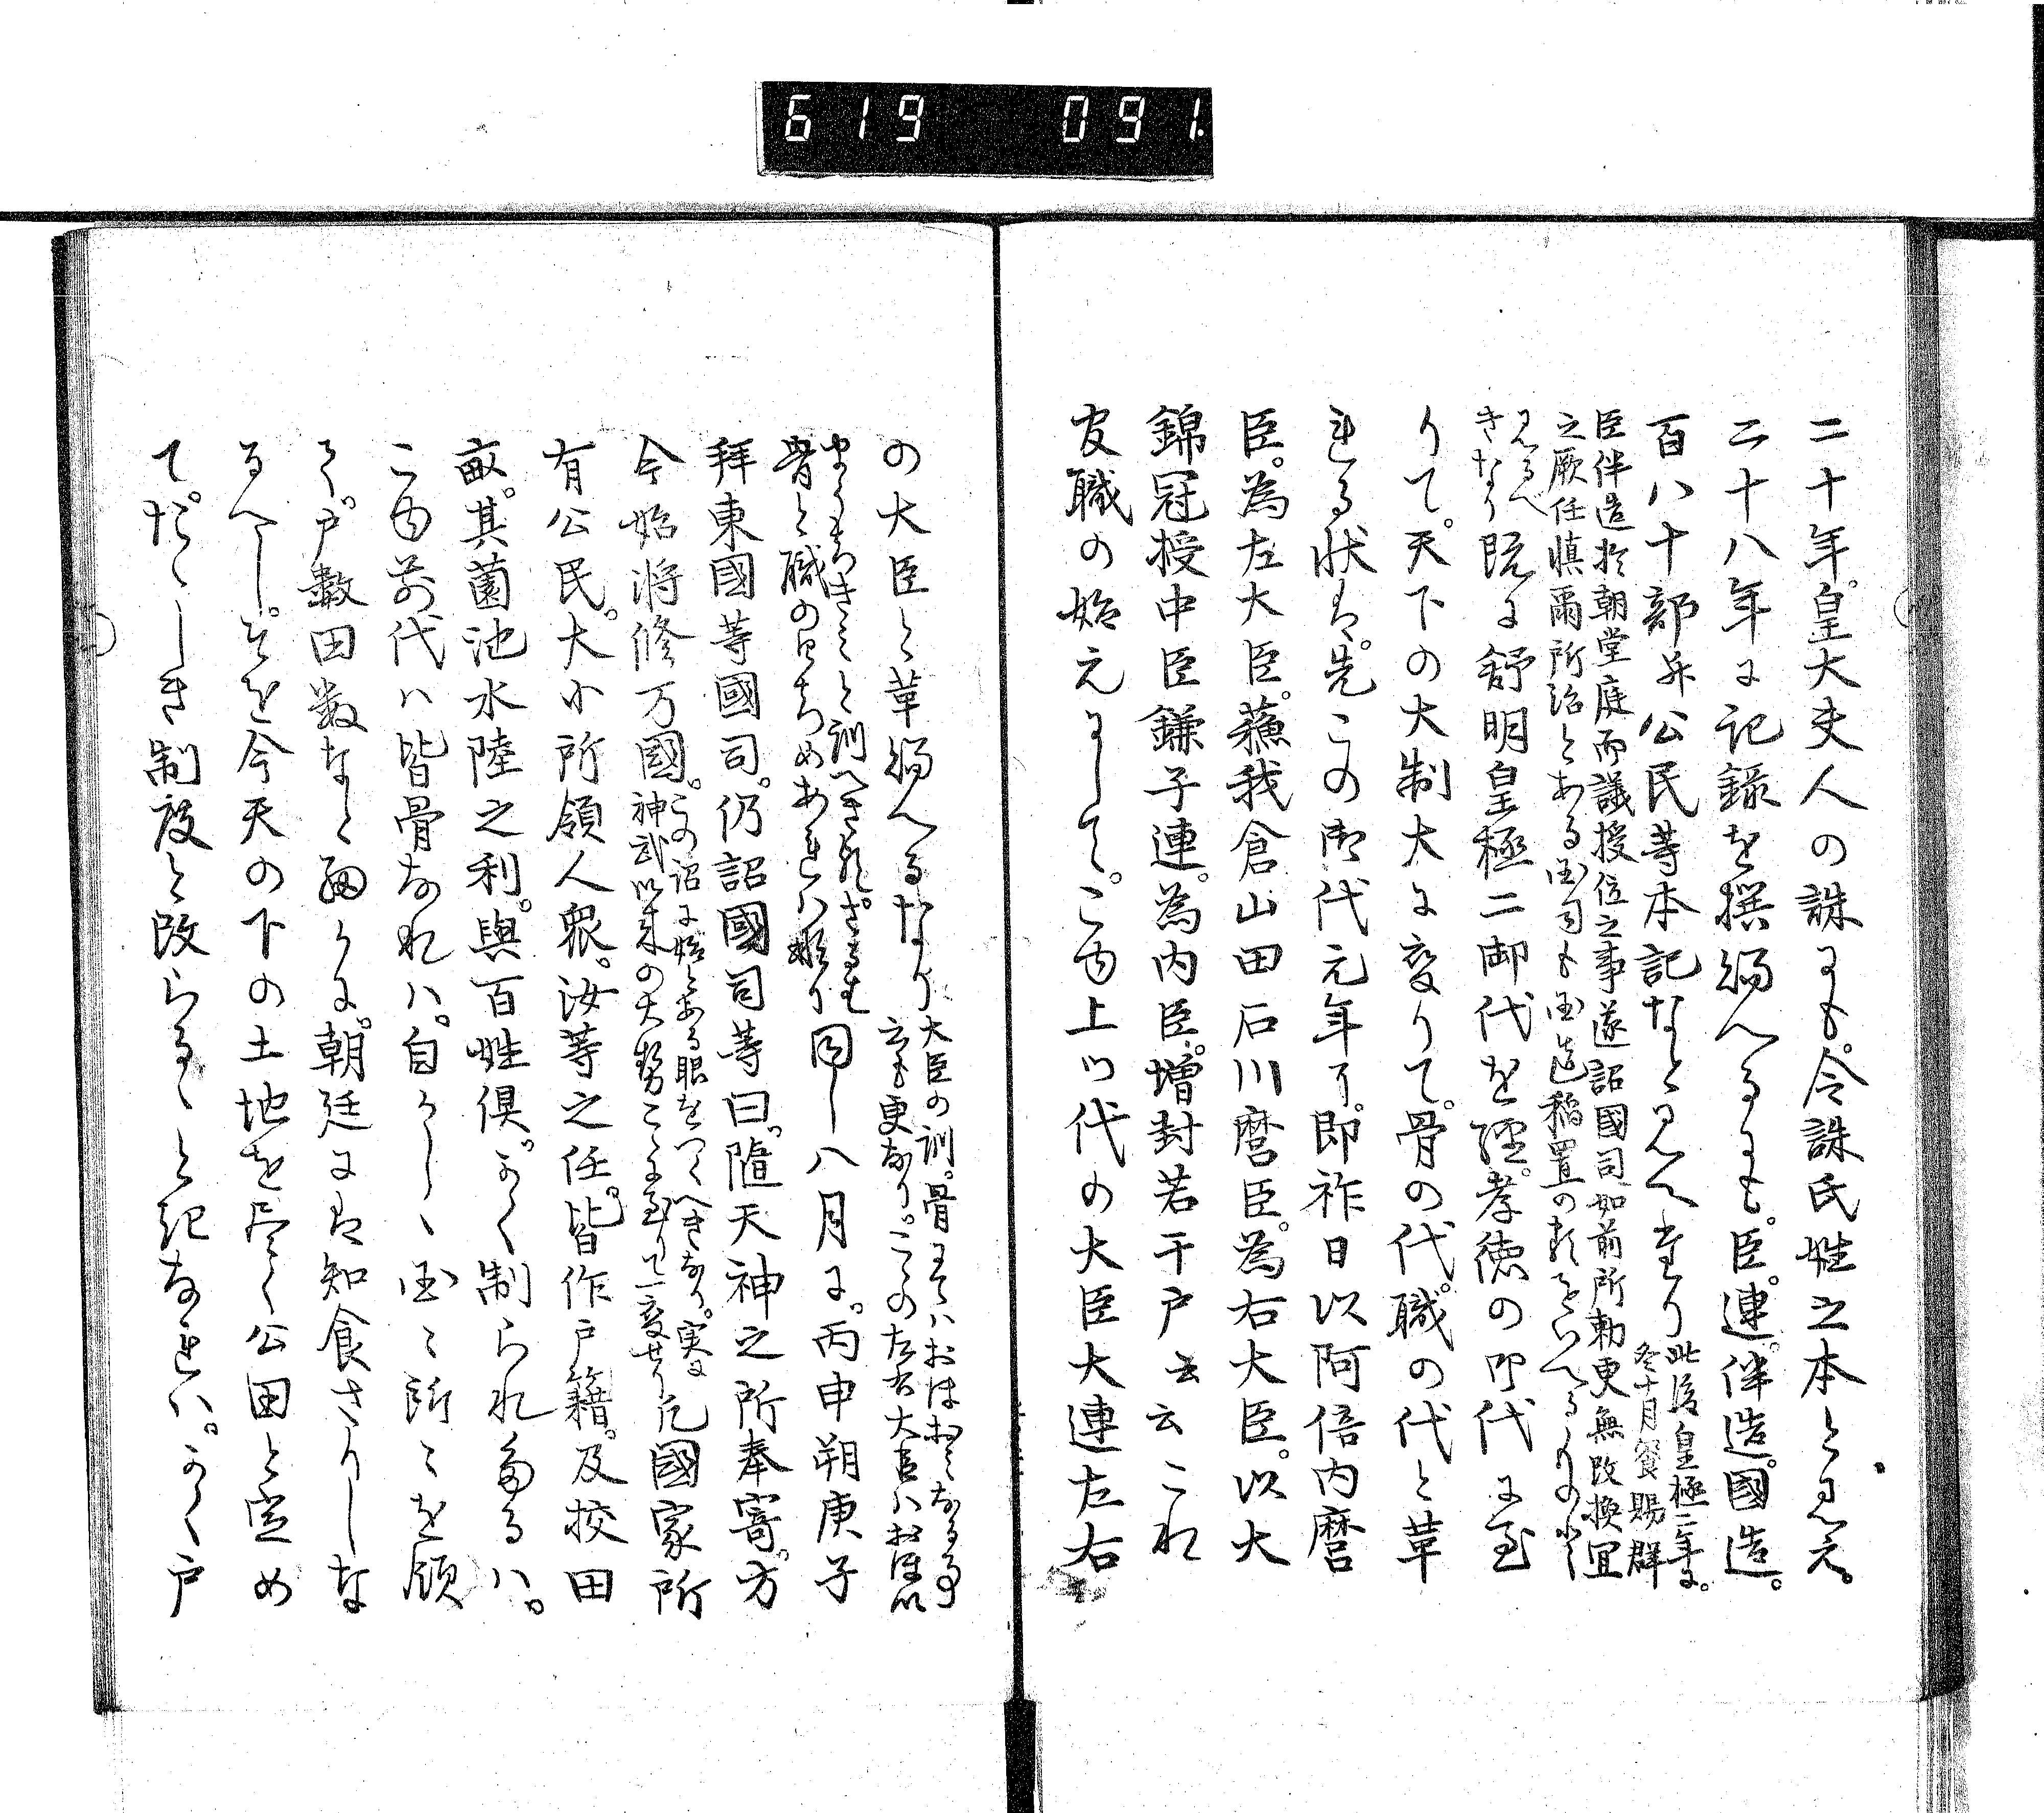 619 091.
二十年。皇大夫人の誄にも。令誄氏姓之本と見え。
二十八年に記録を撰給へるにも。臣。連。伴造。國造。
百八十部并公民等本記なと見へたり 此後皇極二年に。
冬十月饗賜群
臣伴造於朝堂庭而議授位之事遂詔國司如前所勅更無改換宜
之厥任慎爾所治とある国司も国造稲置の
見るべ
きなり 既に舒明皇極二御代を経。孝徳の御代に至
りて。天下の大制大に変りて。骨の代。職の代と革
れる状は。先この御代元年に。即祚日以阿倍内麿
臣。為左大臣。蘓我倉山田石川麿臣。為右大臣。以大
錦冠授中臣鎌子連。為内臣。増封若干戸云云これ
官職の始元にして。こゆ上ツ代の大臣大連左右
の大臣と革給へるなり 大臣の訓。骨にてハおほおみなる事
云も更なり。この左右大臣ハおほい
まうちきミと訓へき
骨と職の
同し八月に。丙申朔庚子
拜東國等國司。仍詔國司等曰。隨天神之所奉寄。方
今始將修万國。この詔に始とある眼をつくへきなり。実に
神武以来の大勢こゝに至りて一変せり 凡國家所
有公民。大小所領人衆。汝等之任。皆作戸籍。及挍田
畝。其薗池水陸之利。與百姓倶。かく制られたるハ。
こゆ前代ハ皆骨なれハ。自かしゝ国々所々を領
て。戸数田数なと細かに。朝廷には知食さりしな
るへし。そを今天の下の土地を尽く公田と定め
て。たゝしき制度と改らるゝと詔なれハ。かく戸